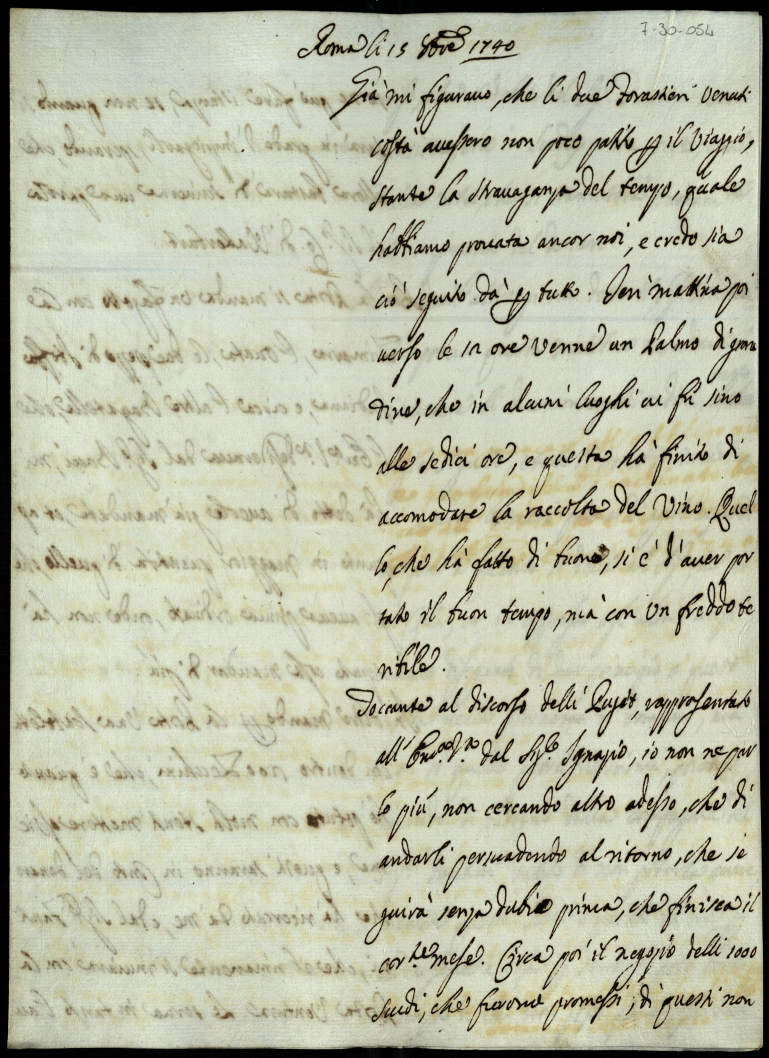 7-30-054
Roma li 15 8bre 1740
Già mi figuravo, che li due forastieri venuti
costà avessero non poco patito p il viaggio,
stante la stravaganza del tempo, quale
habbiamo provata ancor noi, e credo sia
ciò seguito dà p tutto. Ieri mattina poi
verso le 12 ore venne un Palmo di gran
dine, che in alcuni luoghi vi fù sino
alle sedici ore, e questa hà finito di
accomodare la raccolta del Vino. Quel
lo, che hà fatto di buono, si è d'aver por
tato il buon tempo, mà con un freddo te
ribile.
Toccante al discorso delli Pujet, rappresentato
all' Emza. Vra. dal Sigre. Ignazio, io non ne par
lo più, non cercando altro adesso, che di
andarli persuadendo al ritorno, che se
guirà senza dubio prima, che finisca il
corrte. mese. Circa poi il negozio delli 1000
scudi, che furono promessi, di questi non